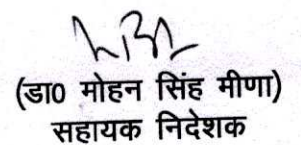 (डा0 मोहन सिंह मीणा)
सहायक निदेशक